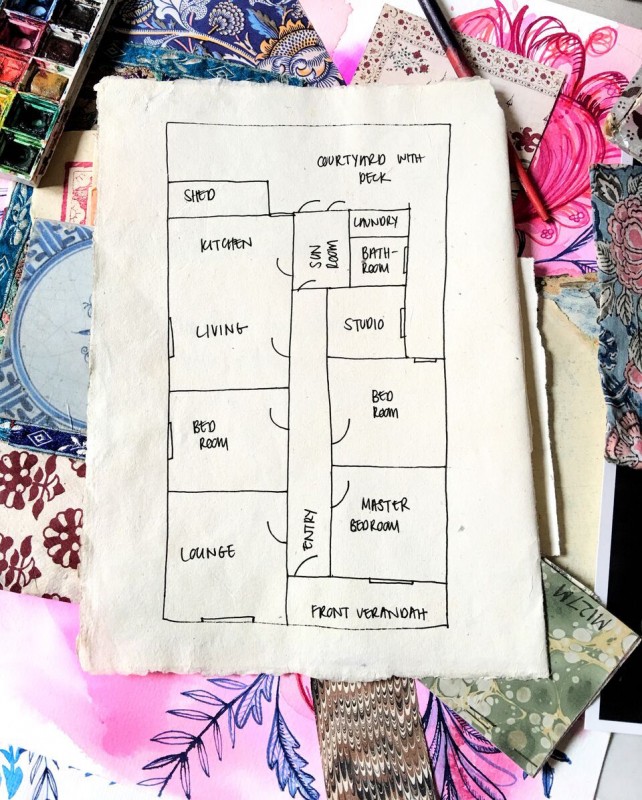 COURTYARD WITH
DECK
SHED
LAUNDRY
KITCHEN
SUN
ROOM
BATH-
ROOM
LIVING
STUDIO
BED
ROOM
BED
ROOM
MASTER
BEDROOM
ENTRY
LOUNGE
FRONT VERANDAH
M127M